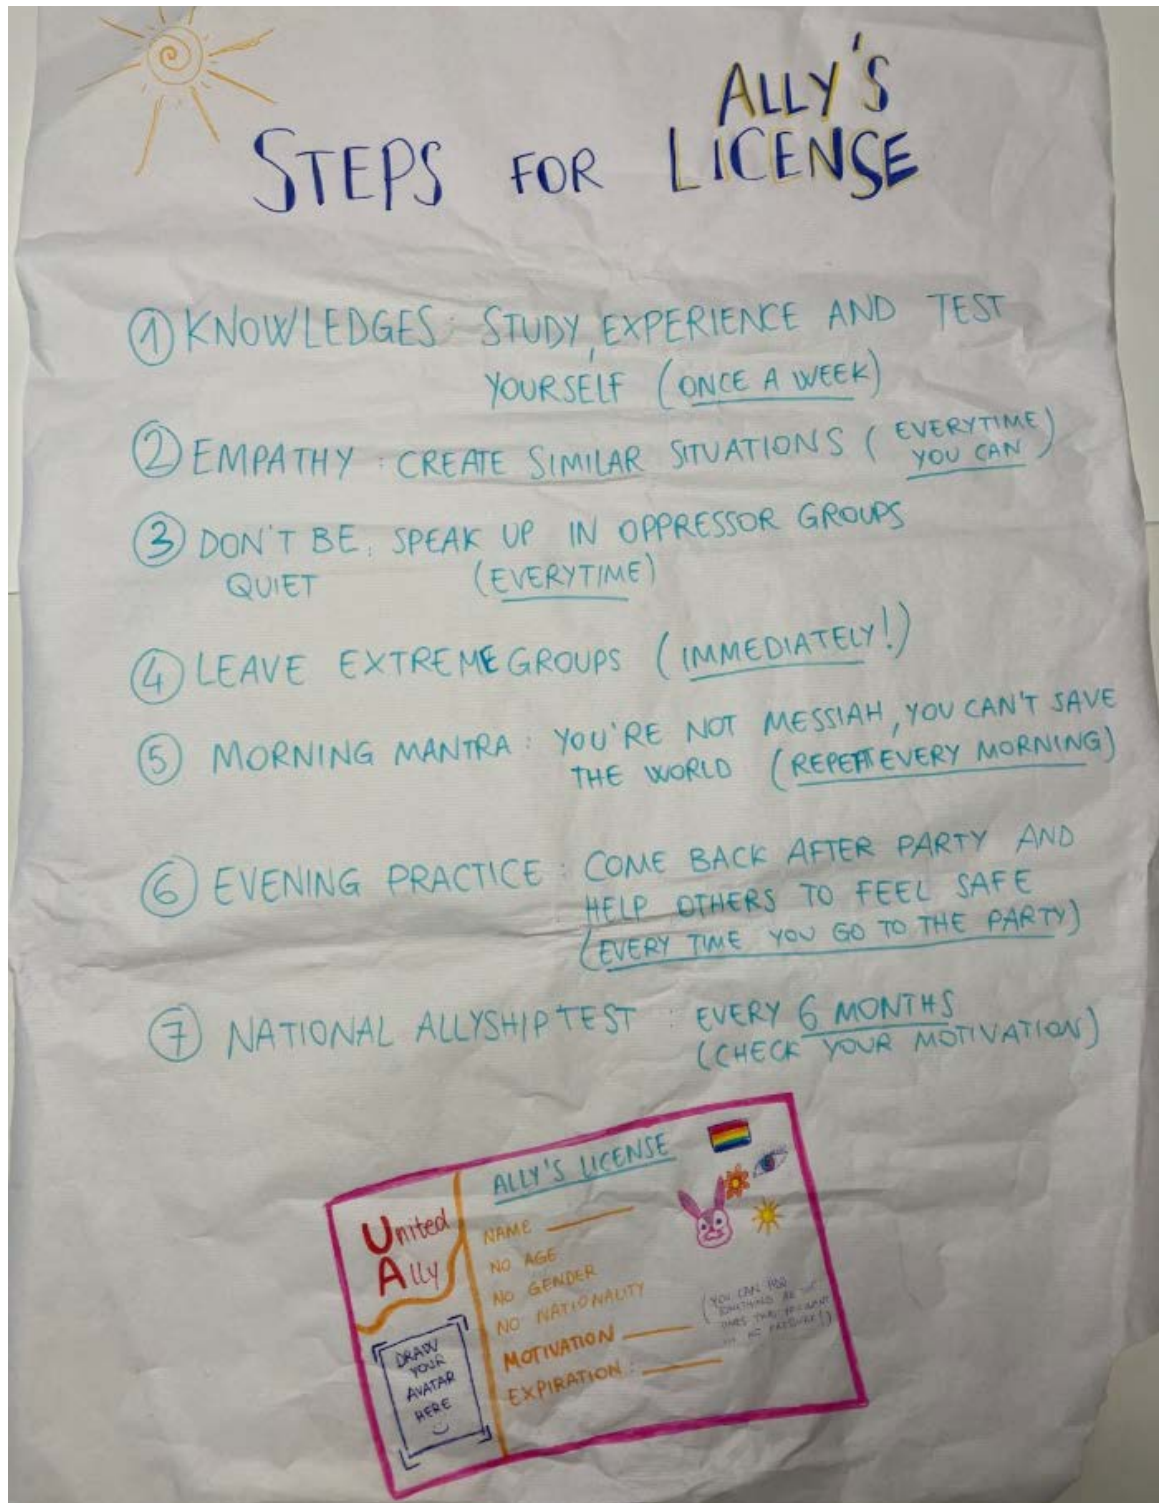 STEPS FOR ALLY'S LICENSE
① KNOWLEDGES: STUDY, EXPERIENCE AND TEST
YOURSELF (ONCE A WEEK)
② EMPATHY: CREATE SIMILAR SITUATIONS (EVERYTIME
YOU CAN)
③ DON'T BE: SPEAK UP IN OPPRESSOR GROUPS
QUIET (EVERYTIME)
④ LEAVE EXTREME GROUPS (IMMEDIATELY!)
⑤ MORNING MANTRA: YOU'RE NOT MESSIAH, YOU CAN'T SAVE
THE WORLD (REPEAT EVERY MORNING)
⑥ EVENING PRACTICE: COME BACK AFTER PARTY AND
HELP OTHERS TO FEEL SAFE
(EVERY TIME YOU GO TO THE PARTY)
⑦ NATIONAL ALLYSHIP TEST: EVERY 6 MONTHS
(CHECK YOUR MOTIVATION)
United
Ally
DRAW
YOUR
AVATAR
HERE
ALLY'S LICENSE
NAME
NO AGE
NO GENDER
NO NATIONALITY
MOTIVATION
EXPIRATION:
(YOU CAN ADD
SOMETHING
THAT YOU WANT
NO PRESSURE!)